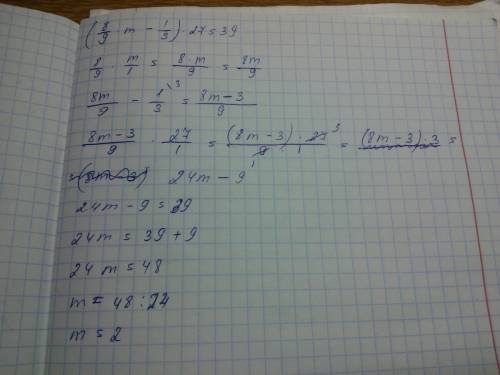 (8/9 · m − 1/3) · 27 = 39
8/9 · m/1 = 8·m/9 = 8m/9
8m/9 − 1\3/3 = 8m−3/9
8m−3/9 · 27/1 = (8m−3)·27 3/9 1 1 = (8m−3)·3 =
= 24m − 9
24m − 9 = 39
24m = 39 + 9
24m = 48
m = 48 : 24
m = 2